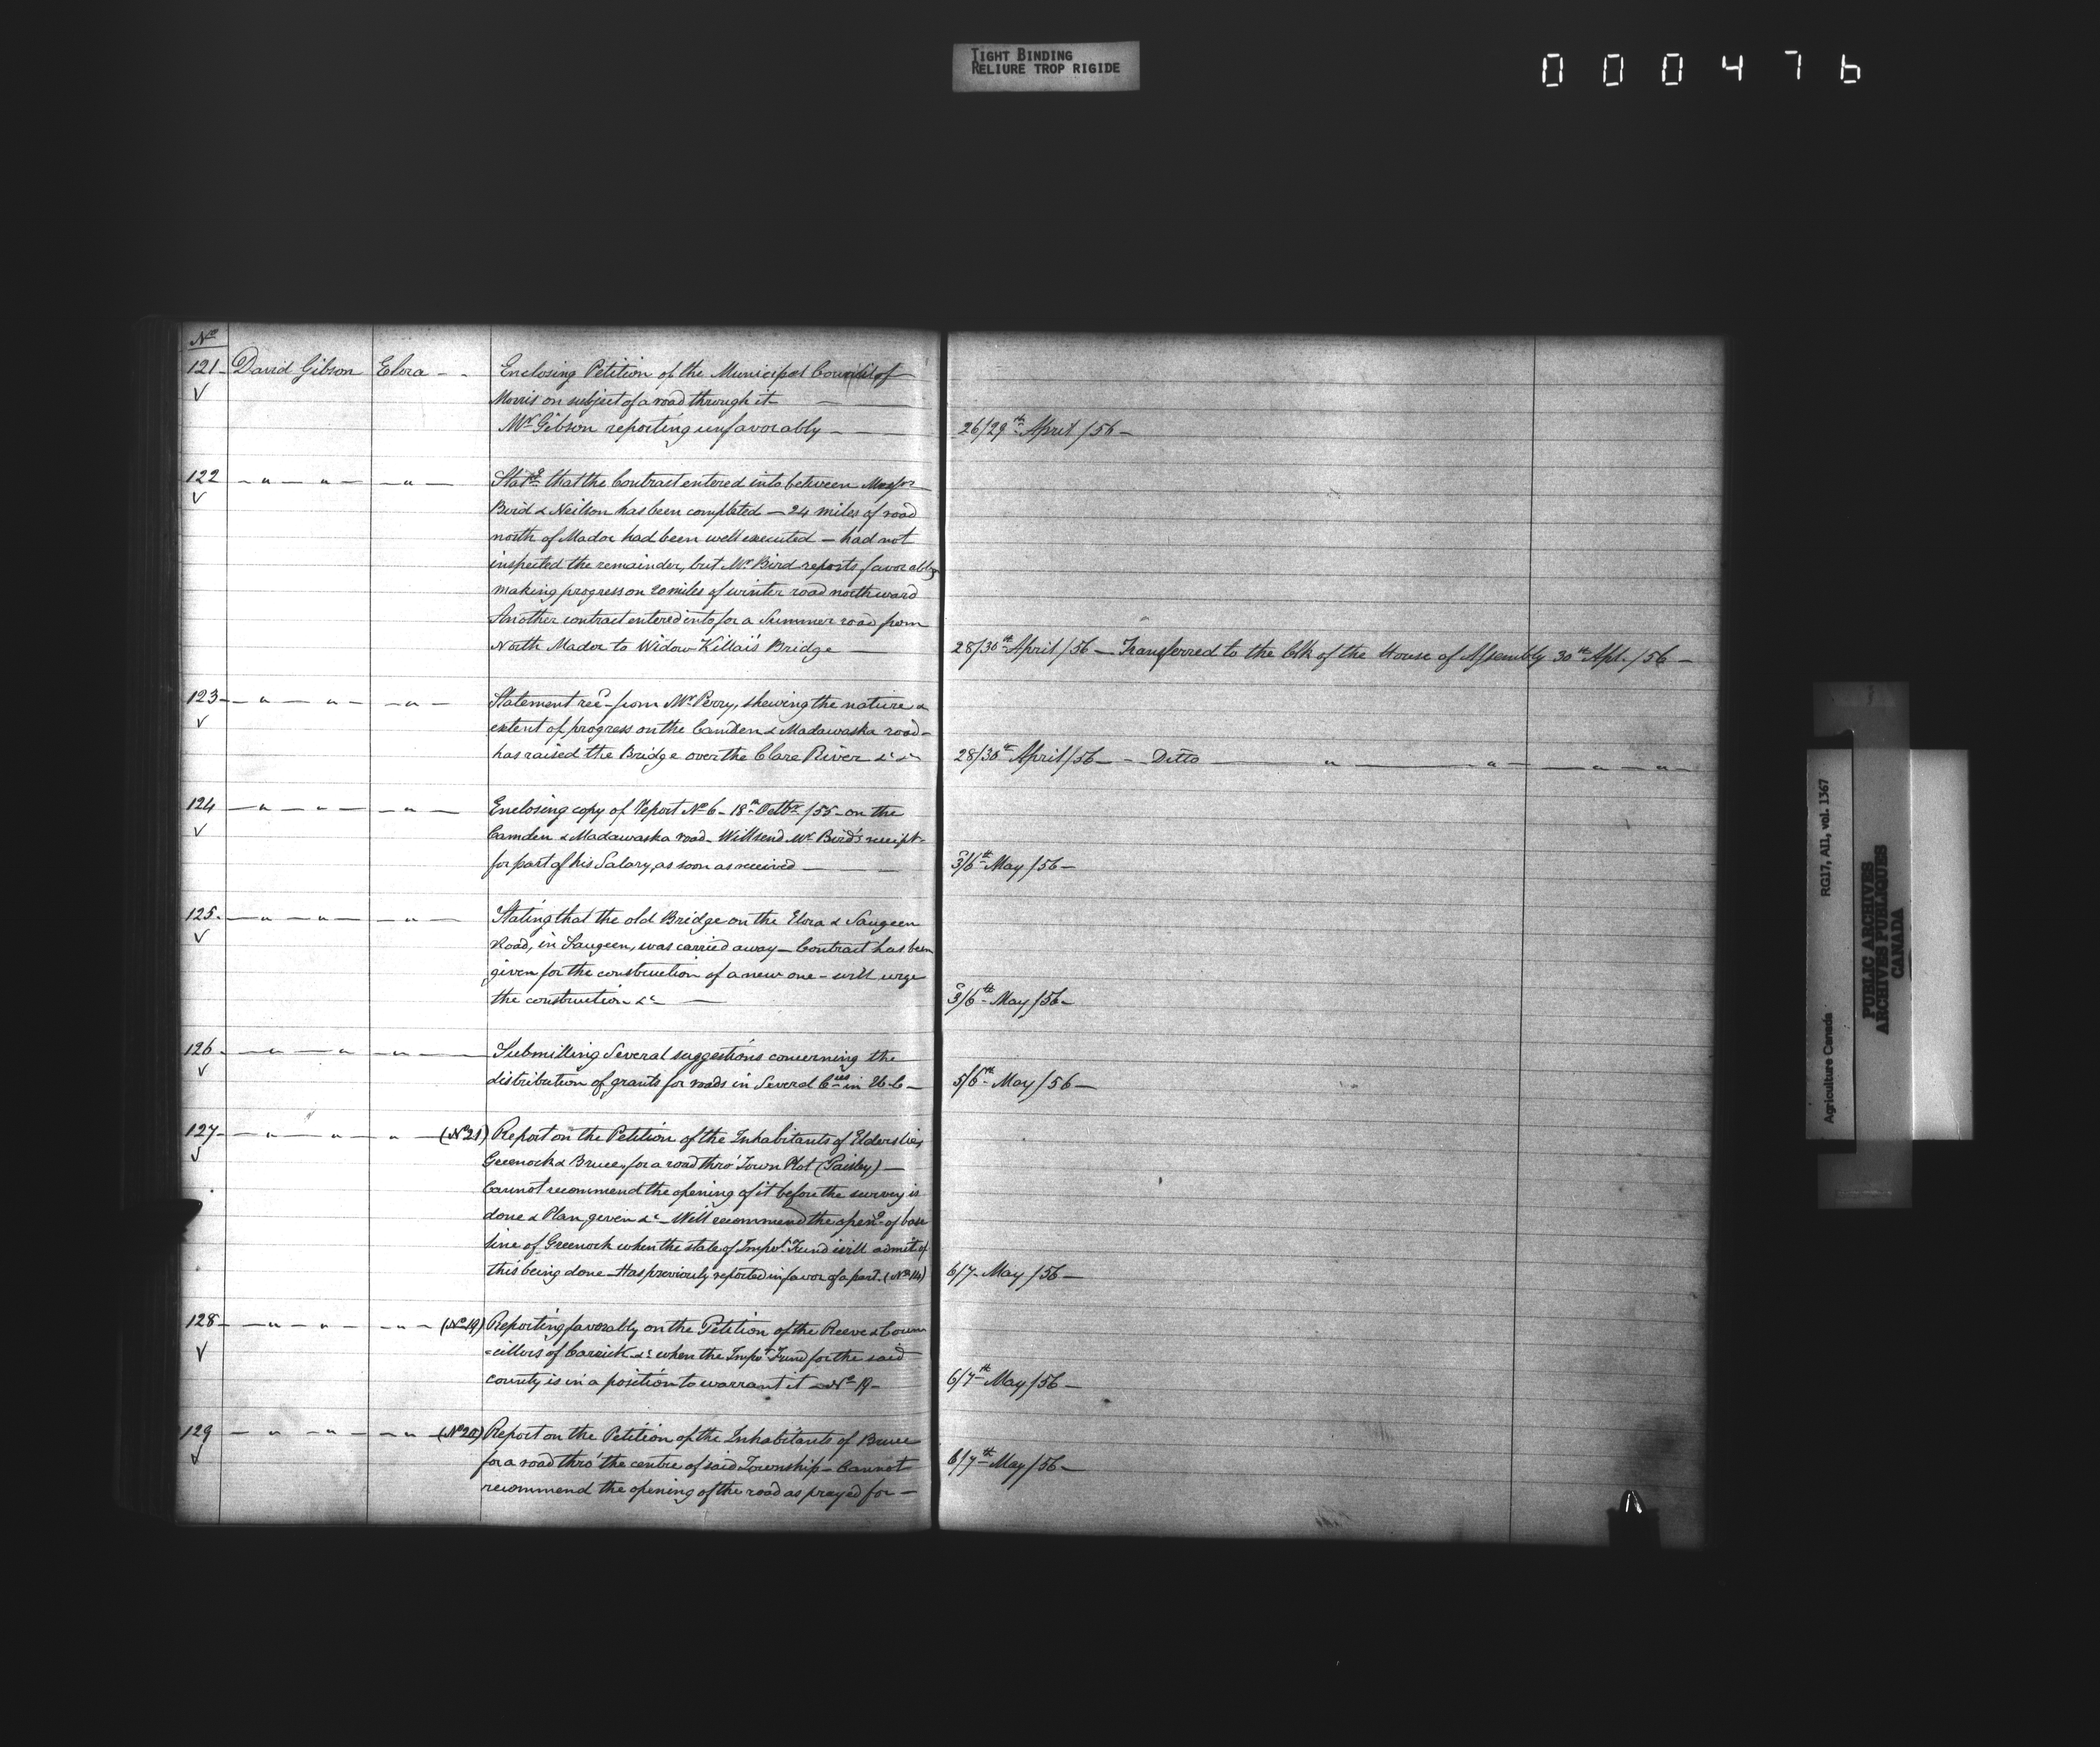 TIGHT BINDING
RELIURE TROP RIGIDE
000476
No
121 David Gibson Elora - - Enclosing Petition of the Municipal Council of
Morris on subject of a road through it —
Mr Gibson reporting unfavorably — 26/29th April /56 —
122 — " — " — — " — Statg that the Contract entered into between Messrs
Bird & Neilson has been completed — 24 miles of road
north of Madoc had been well executed — had not
inspected the remainder, but Mr Bird reports favorably
making progress on 20 miles of winter road northward
Another contract entered into for a Summer road from
North Madoc to Widow Bridge — 28/30th April /56 — Transferred to the Clk of the House of Assembly 30th Apl. /56 —
123 — " — " — — " — Statement recd from Mr Perry, shewing the nature &
extent of progress on the Camden & Madawaska road —
has raised the Bridge over the Clare River &c &c 28/30th April /56 — - Ditto — " — " — " — " —
124 — " — " — — " — Enclosing copy of Report No 6 - 18th Octbr /55 - on the
Camden & Madawaska road - Will send Mr Bird's receipt
for part of his Salary, as soon as received — 3/6th May /56 —
125 — " — " — — " — Stating that the old Bridge on the Elora & Saugeen
Road, in Saugeen, was carried away — Contract has been
given for the construction of a new one - will urge
the construction &c — 3/6th May /56 —
126 — " — " — — " — Submitting Several suggestions concerning the
distribution of grants for roads in Several Cies in U.C — 5/6th May /56 —
127 — " — " — " — (No 21) Report on the Petition of the Inhabitants of Elderslie,
Greenock & Bruce, for a road thro' Town Plot (Paisley) —
Cannot recommend the opening of it before the survey is
done & Plan given &c — Will recommend the openg of base
line of Greenock when the state of Impvt Fund will admit of
this being done — Has previously reported in favor of a part. (No 14) 6/7 - May /56 —
128 — " — " — — " — (No 19) Reporting favorably on the Petition of the Reeve & Coun
=cillors of Carrick &c when the Impvt Fund for the said
county is in a position to warrant it — No 19 — 6/7th May /56 —
129 — " — " — " — (No 20) Report on the Petition of the Inhabitants of Bruce
for a road thro' the centre of said Township — Cannot 6/7th May /56 —
recommend the opening of the road as prayed for —
Agriculture Canada RG17, AII, vol. 1367
PUBLIC ARCHIVES
ARCHIVES PUBLIQUES
CANADA